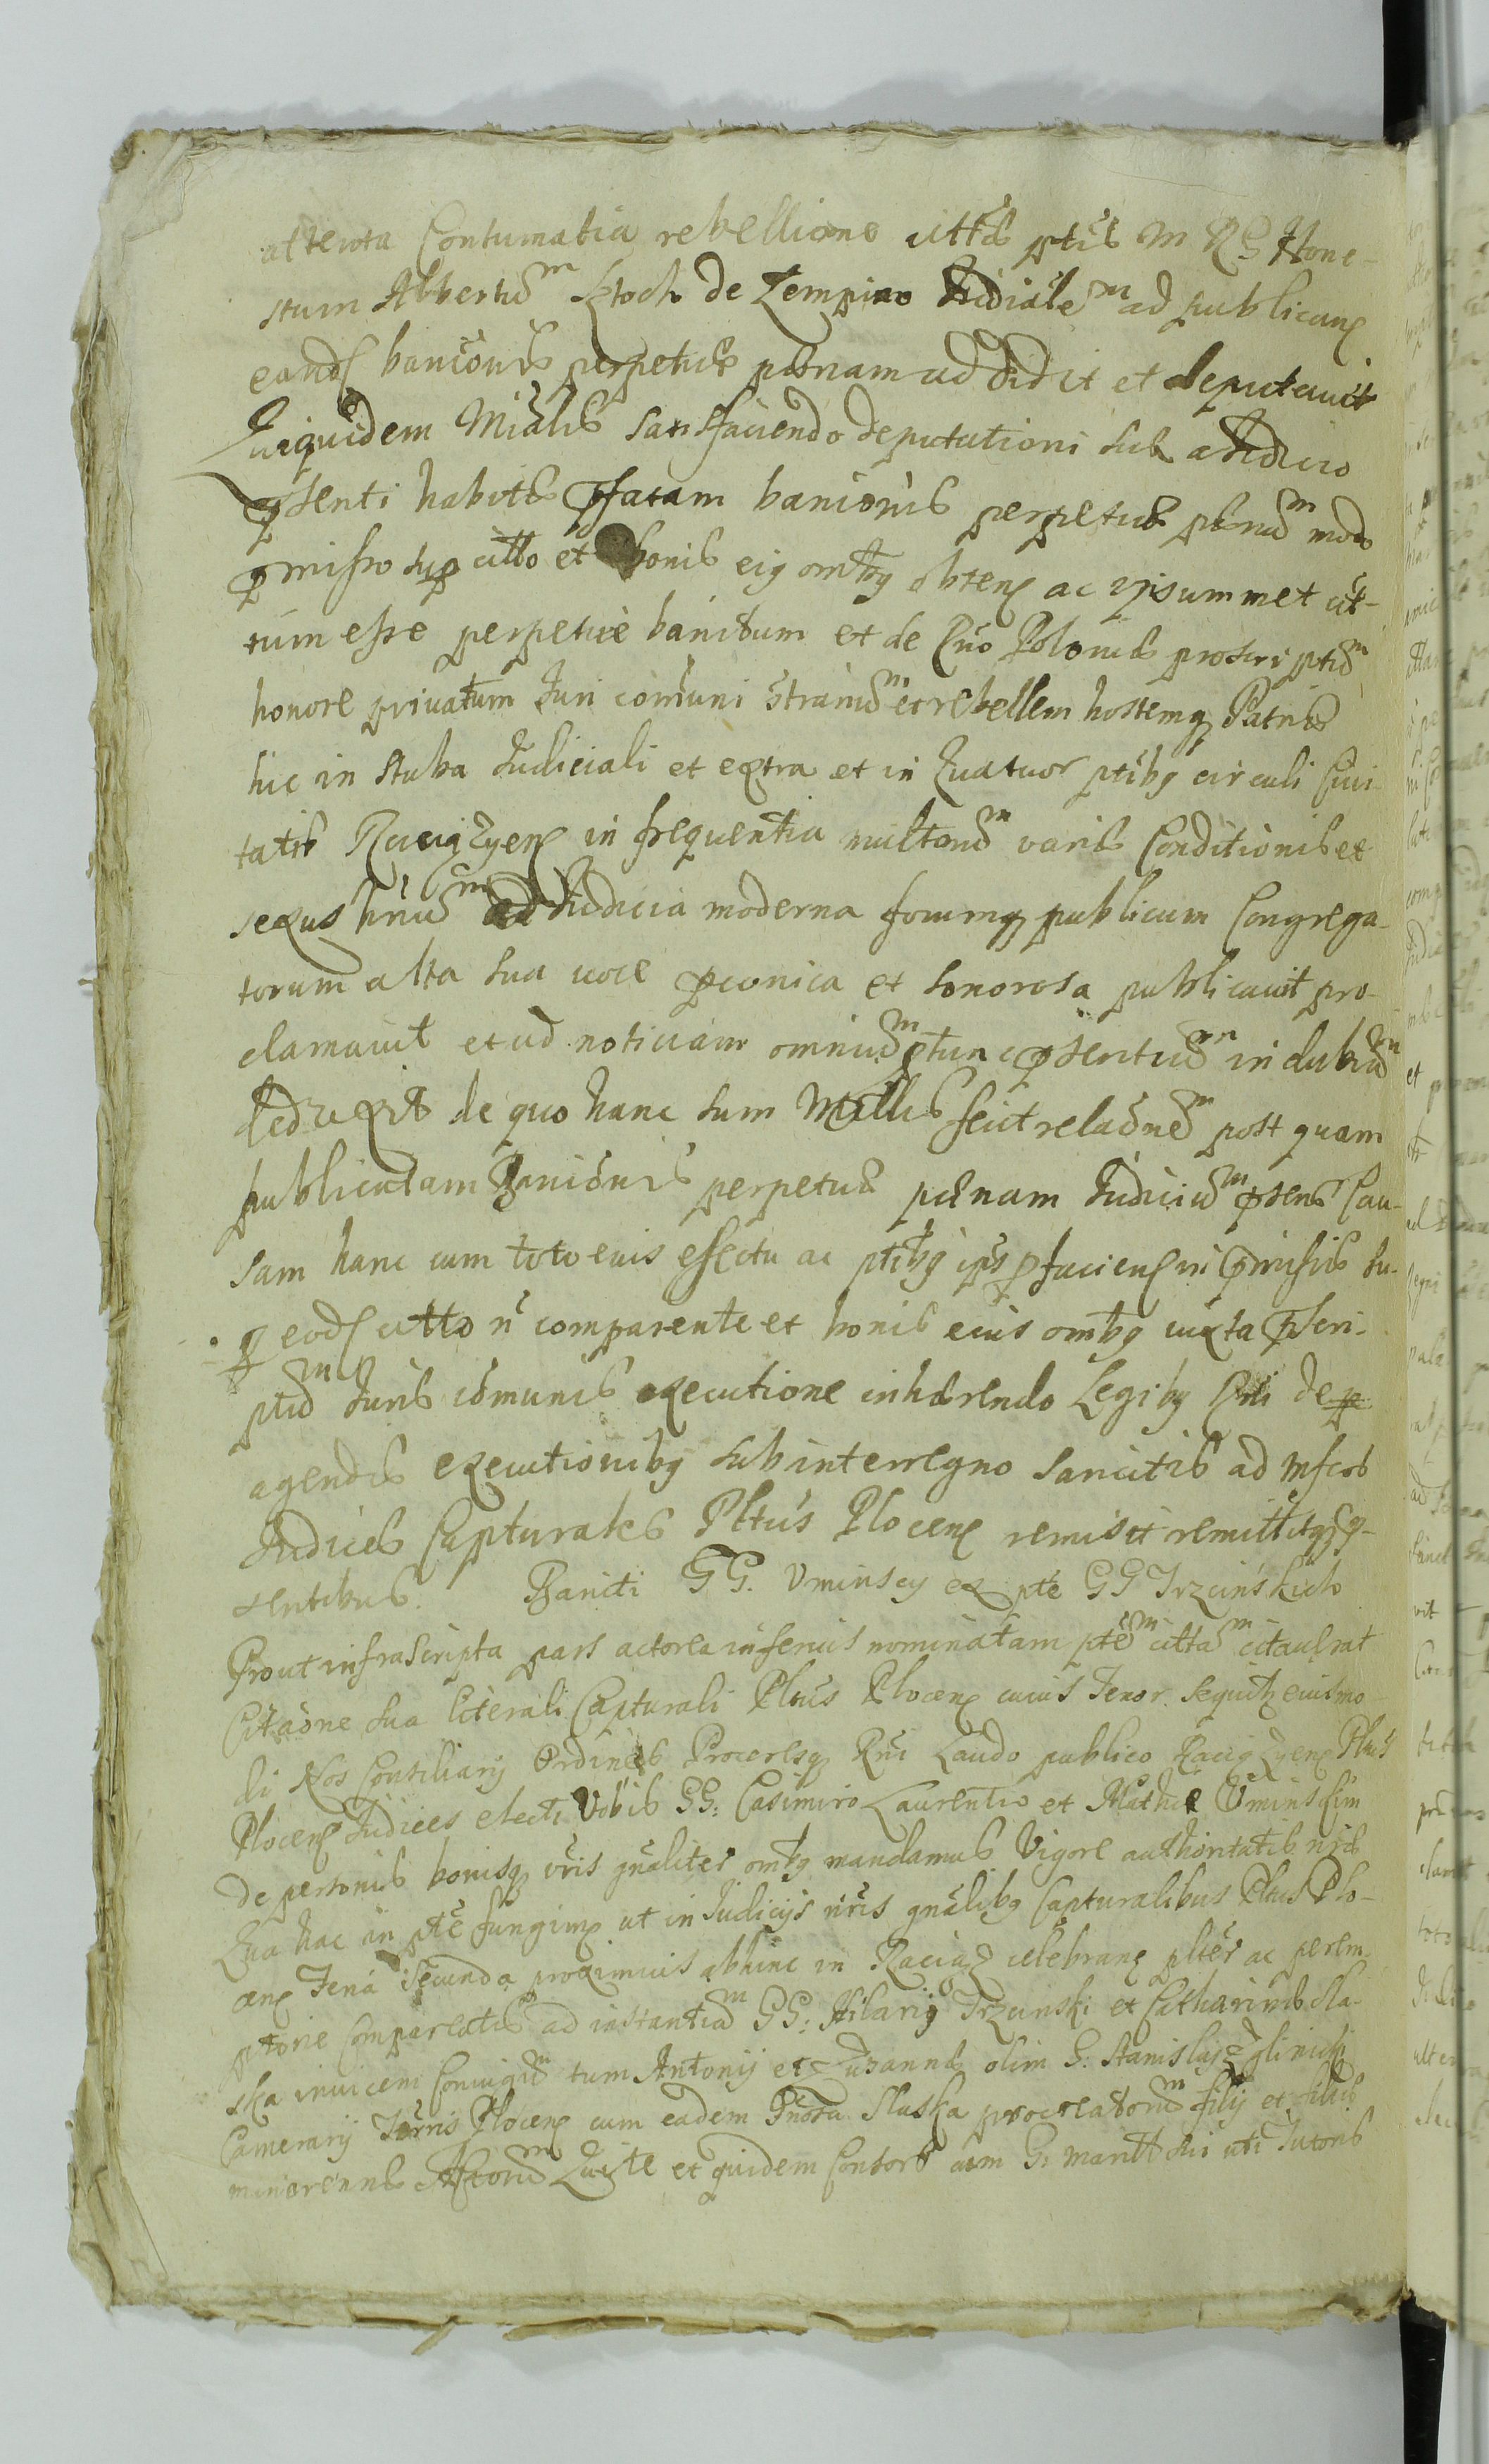 attenta Contumatia rebellione citti ptis M RG Hone-
stum Albertum Ktoch de Lempino Judiciale ad publicanꝝ
eandꝭ banionis perpetuæ pænam addidit et deputavit
Quiquidem Mialis satisfaciendo deputationi sub a Judicio
pſenti habitæ pfatam banionis perpetuæ pænam modo
pmisso sup citto et bonis eiꝰ omibꝰ obtenꝭ ac ipsummet cit-
tum esse perpetuè banitum et de Rno Poloniæ proscriptum
honore privatum Juri comuni contrarium et rebellem hostemqꝫ Patriæ
hic in stuba Judiciali et extra et in Quatuor ptibꝰ circuli Civi-
tatis Raciązyenꝭ in frequentia multorum varis Conditionis et
sexus hnum ad Judicia moderna forumqꝫ publicum Congrega-
torum alta sua voce pconica et sonorosa publicavit pro-
clamavit et ad notitiam omnium ptunc psentium indubiam
deduxit de quo hanc suam Mllis fecit relaonem post quam
publicatam Banionis perpetuæ pænam Judicium psens Cau-
sam hanc cum toto eius effectu ac ptibꝰ ips pfaciens in pmissis su-
p eodꝭ citto n comparente et bonis eius omibꝰ iuxta pscri-
ptum Juris comunis executione inhærendo Legibꝰ Rni de p
agendis executionibꝰ sub interregno sancitis ad Mfcos
Judices Capturales Pltus Plocenꝭ remisit remittitqꝫ p-
sentibus. Baniti GG. Uminscy ex pte GG Trzcińskich
Prout infrascripta pars actorea inferius nominatam ptem cittam citaverat
Citaone sua literali Capturali Pltus Plocenꝭ cuius Tenor sequitur eiusmo-
di Nos Consiliarij Ordines Proceresqꝫ Rni Laudo publico Raciązyenꝭ Pltus
Plocenꝭ Judices electi Vobis GG: Casimiro Laurentio et Mathiæ Uminscim
de personis bonisqꝫ vris gnaliter omibꝰ mandamus Vigore authoritatis nræ
Qua hac in pte fungimꝰ ut in Judicijs nris gnalibꝰ Capturalibus Pltus Plo-
cenꝭ Feria Secunda proximius abhinc in Raciąz celebranꝭ pliter ac perem-
ptorie Compareatis ad instantiam GG: Hilarij Trzcinski et Catharinæ Slu-
ska invicem Coniugum tum Antonij et Zuzannæ olim G: Stanislai Zglinicki
Camerarij Terris Plocenꝭ cum eadem Gnosa Sluska procreatorum filij et filiæ
minorennis Actorum Quæ te et quidem Consors cum G: maritt sui uti Tutoris